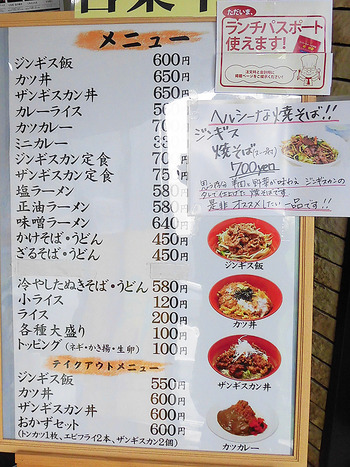 メニュー
ジンギス飯 600円
カツ丼 650円
ザンギスカン丼 650円
カレーライス 50
カツカレー 70
ミニカレー 33
ジンギスカン定食 70
ザンギスカン定食 75
塩ラーメン 580
正油ラーメン 580
味噌ラーメン 640
かけそば・うどん 450円
ざるそば・うどん 450円
冷やしたぬきそば・うどん 580円
小ライス 120円
ライス 200円
各種大盛り 100円
トッピング (ネギ・かき揚・生卵) 100円
テイクアウトメニュー
ジンギス飯 550円
カツ丼 600円
ザンギスカン丼 600円
おかずセット 600円
(トンカツ1枚、エビフライ2本、ザンギスカン2個)
ただいま、
ランチパスポート
使えます!
ヘルシーな焼そば!!
ジンギス
焼そば
700yen
是非オススメしたい一品です!!
ジンギス飯
カツ丼
ザンギスカン丼
カツカレー